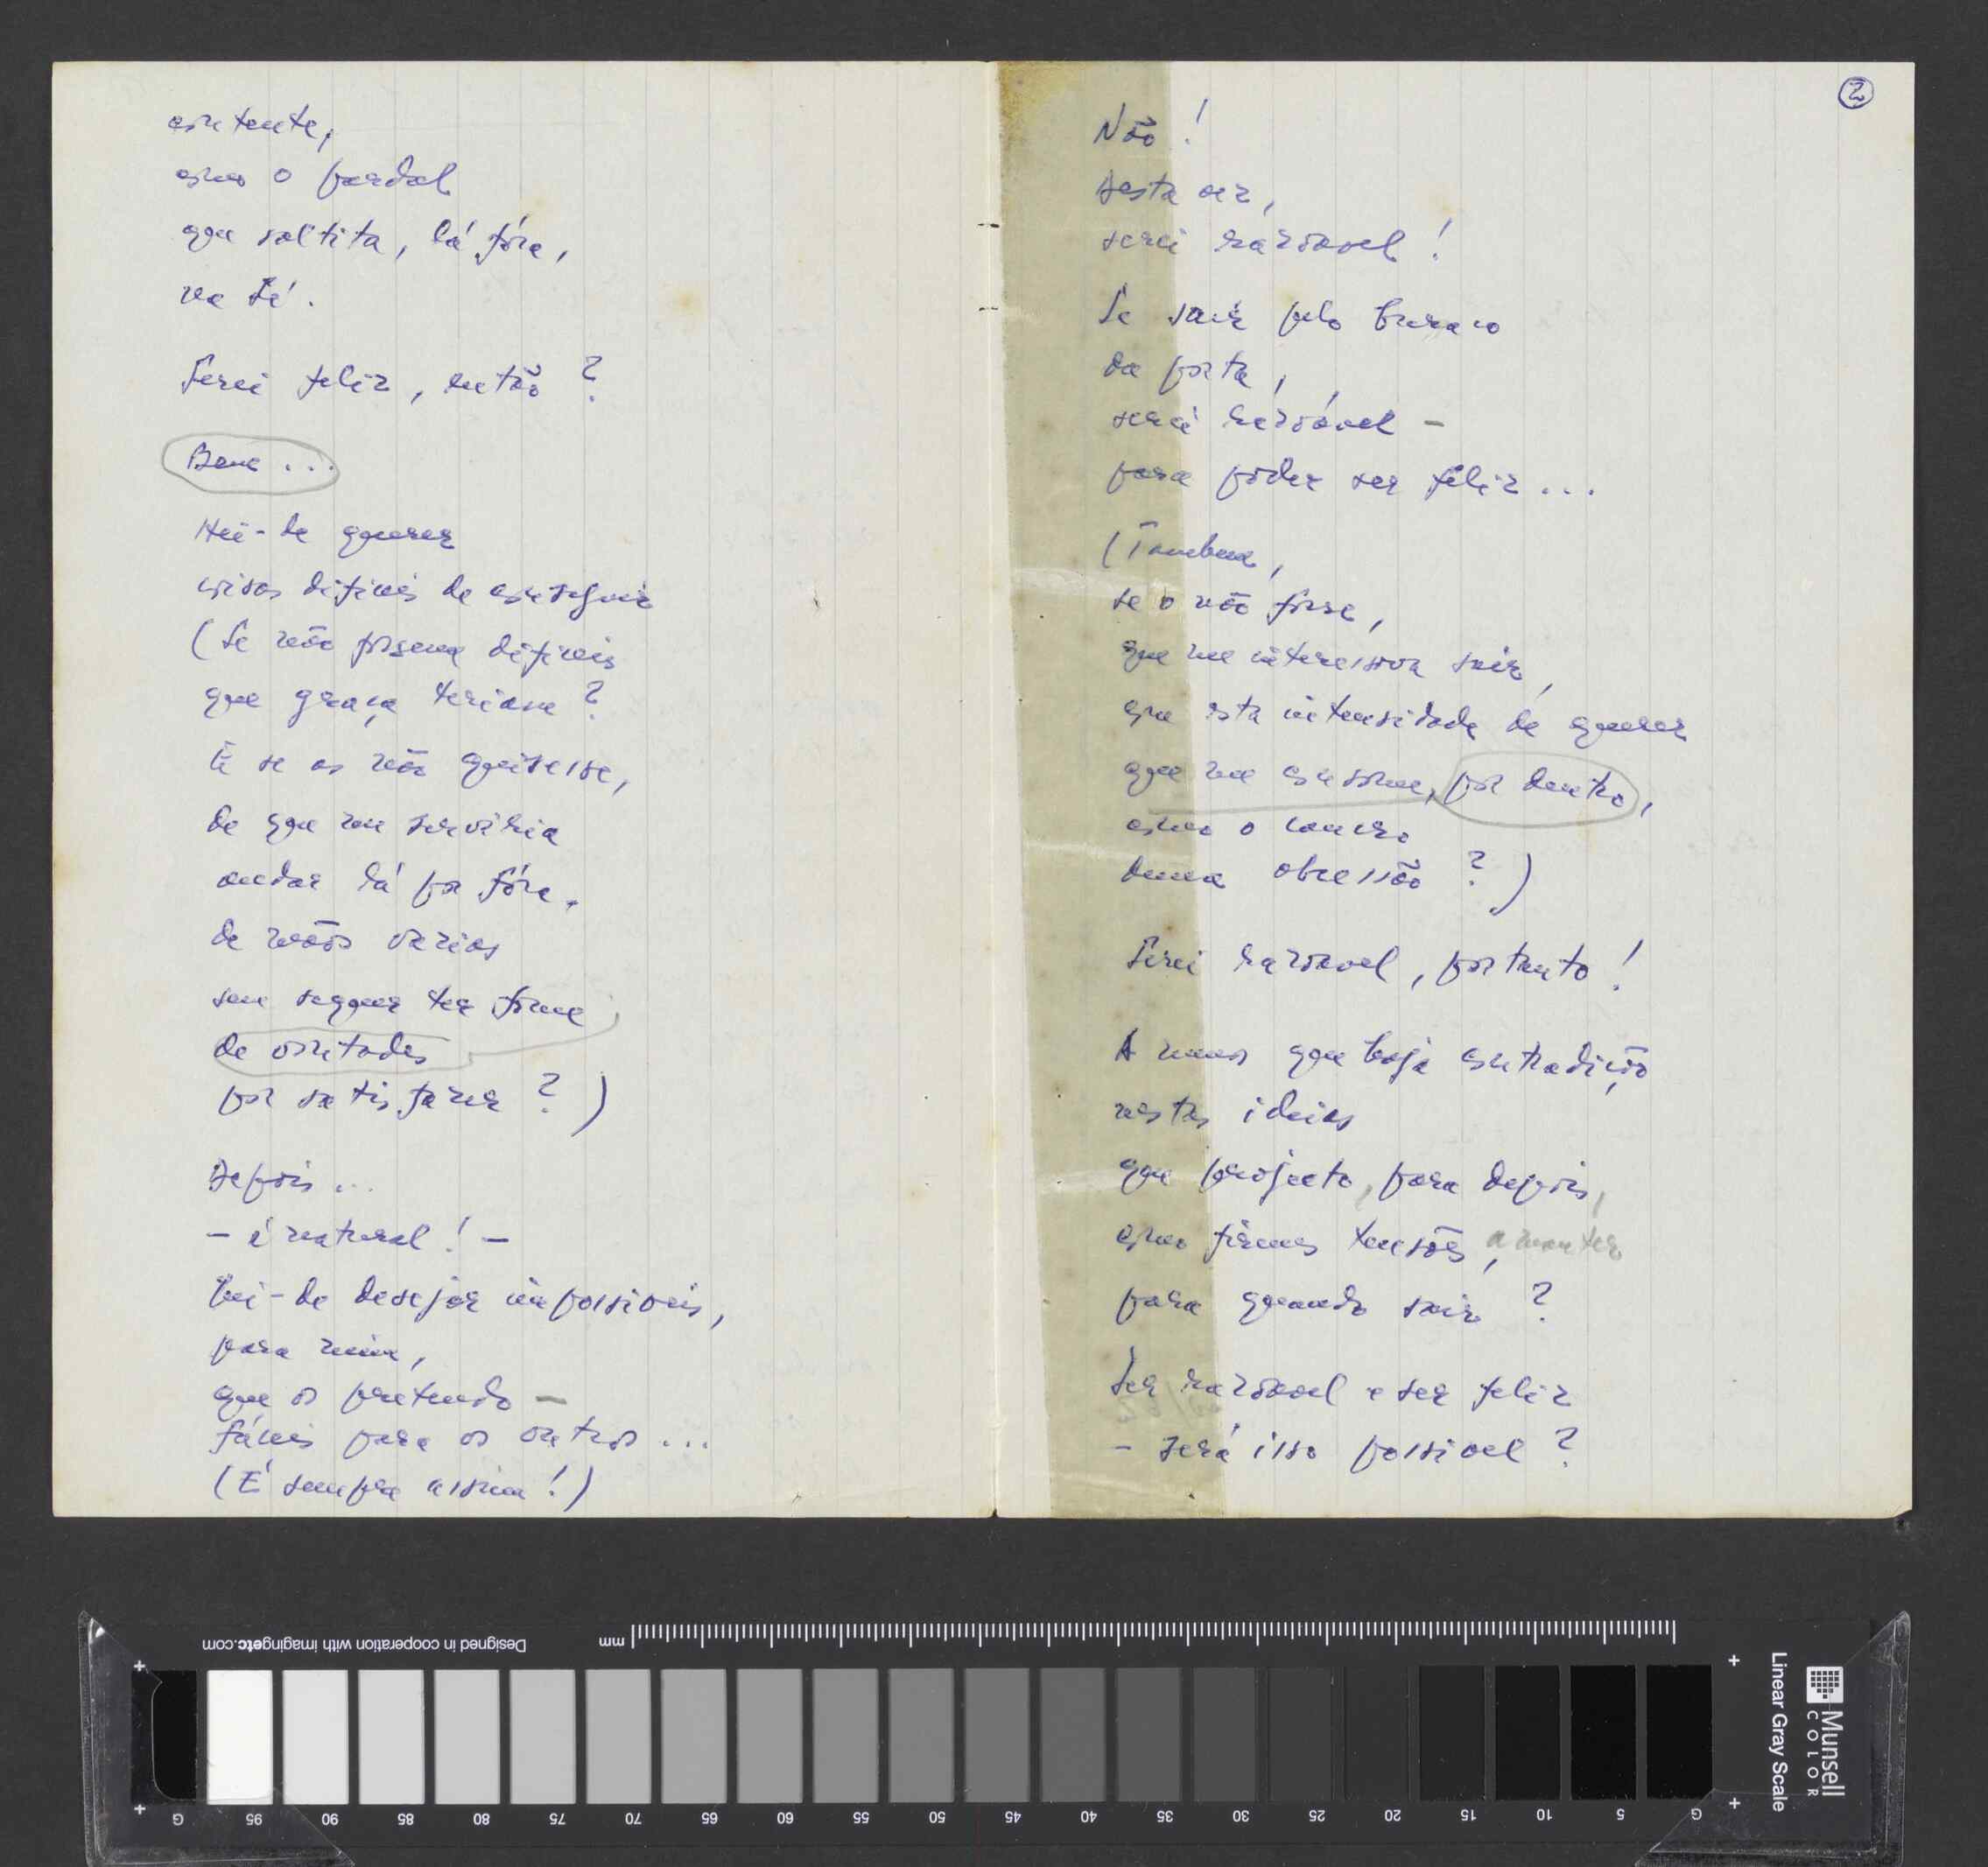 contente,
como o pardal
que saltita, lá fóra,
na Sé.
Serei feliz, então?
Bem...
Hei-de querer
coisas difíceis de conseguir
(Se não fossem difíceis
que graça teriam?
E se as não quisesse,
de que me serviria
andar lá por fóra,
de mãos vazias
sem sequer ter fome
de vontades
por satisfazer?)
Depois...
- é natural! -
hei-de desejar impossíveis,
para mim,
que os pretendo -
fáceis para os outros...
(É sempre assim!)
2
Não!
Desta vez,
serei razoavel!
Se sair pelo buraco
da porta,
serei razoável -
para poder ser feliz...
(Tambem,
se o não fosse,
que me interessava sair,
com esta intensidade de querer
que me consome, por dentro,
como o cancro
duma obsessão?)
Serei razoavel, portanto!
A menos que haja contradição
nestas ideias
que projecto, para depois,
como firmes tensões, a manter
para quando sair?
Ser razoavel e ser feliz
- será isso possivel?
Designed in cooperation with imagingetc.com
mm
G 95 90 85 80 75 70 65 60 55 50 45 40 35 30 25 20 15 10 5 G
Munsell
COLOR
Linear Gray Scale